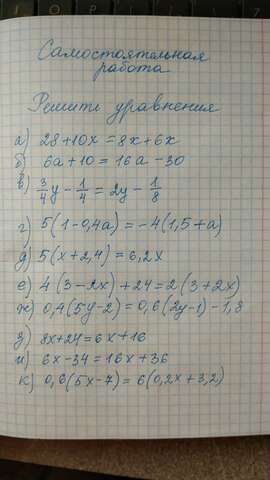 Самостоятельная
работа
Решить уравнения
а) 28+10x = 8x+6x
б) 6a+10 = 16a-30
в) 3/4 y - 1/4 = 2y - 1/8
г) 5(1-0,4a) = -4(1,5+a)
д) 5(x+2,4) = 6,2x
е) 4(3-2x)+24 = 2(3+2x)
ж) 0,4(5y-2) = 0,6(2y-1)-1,8
з) 8x+24 = 6x+16
и) 6x-34 = 16x+36
к) 0,6(5x-7) = 6(0,2x+3,2)